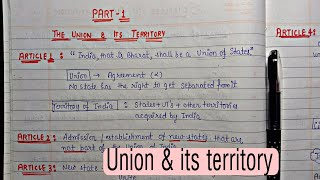 PART-1
THE UNION & ITS TERRITORY
ARTICLE 1: "India, that is Bharat, shall be a Union of States"
Union → Agreement (x)
No state has the right to get separated from it
Territory of India: States + UTs + other territories
acquired by India
ARTICLE 2: Admission / establishment of new states that are
not part of the Union of India
ARTICLE 3: New state
ARTICLE 4:
Union & its territory